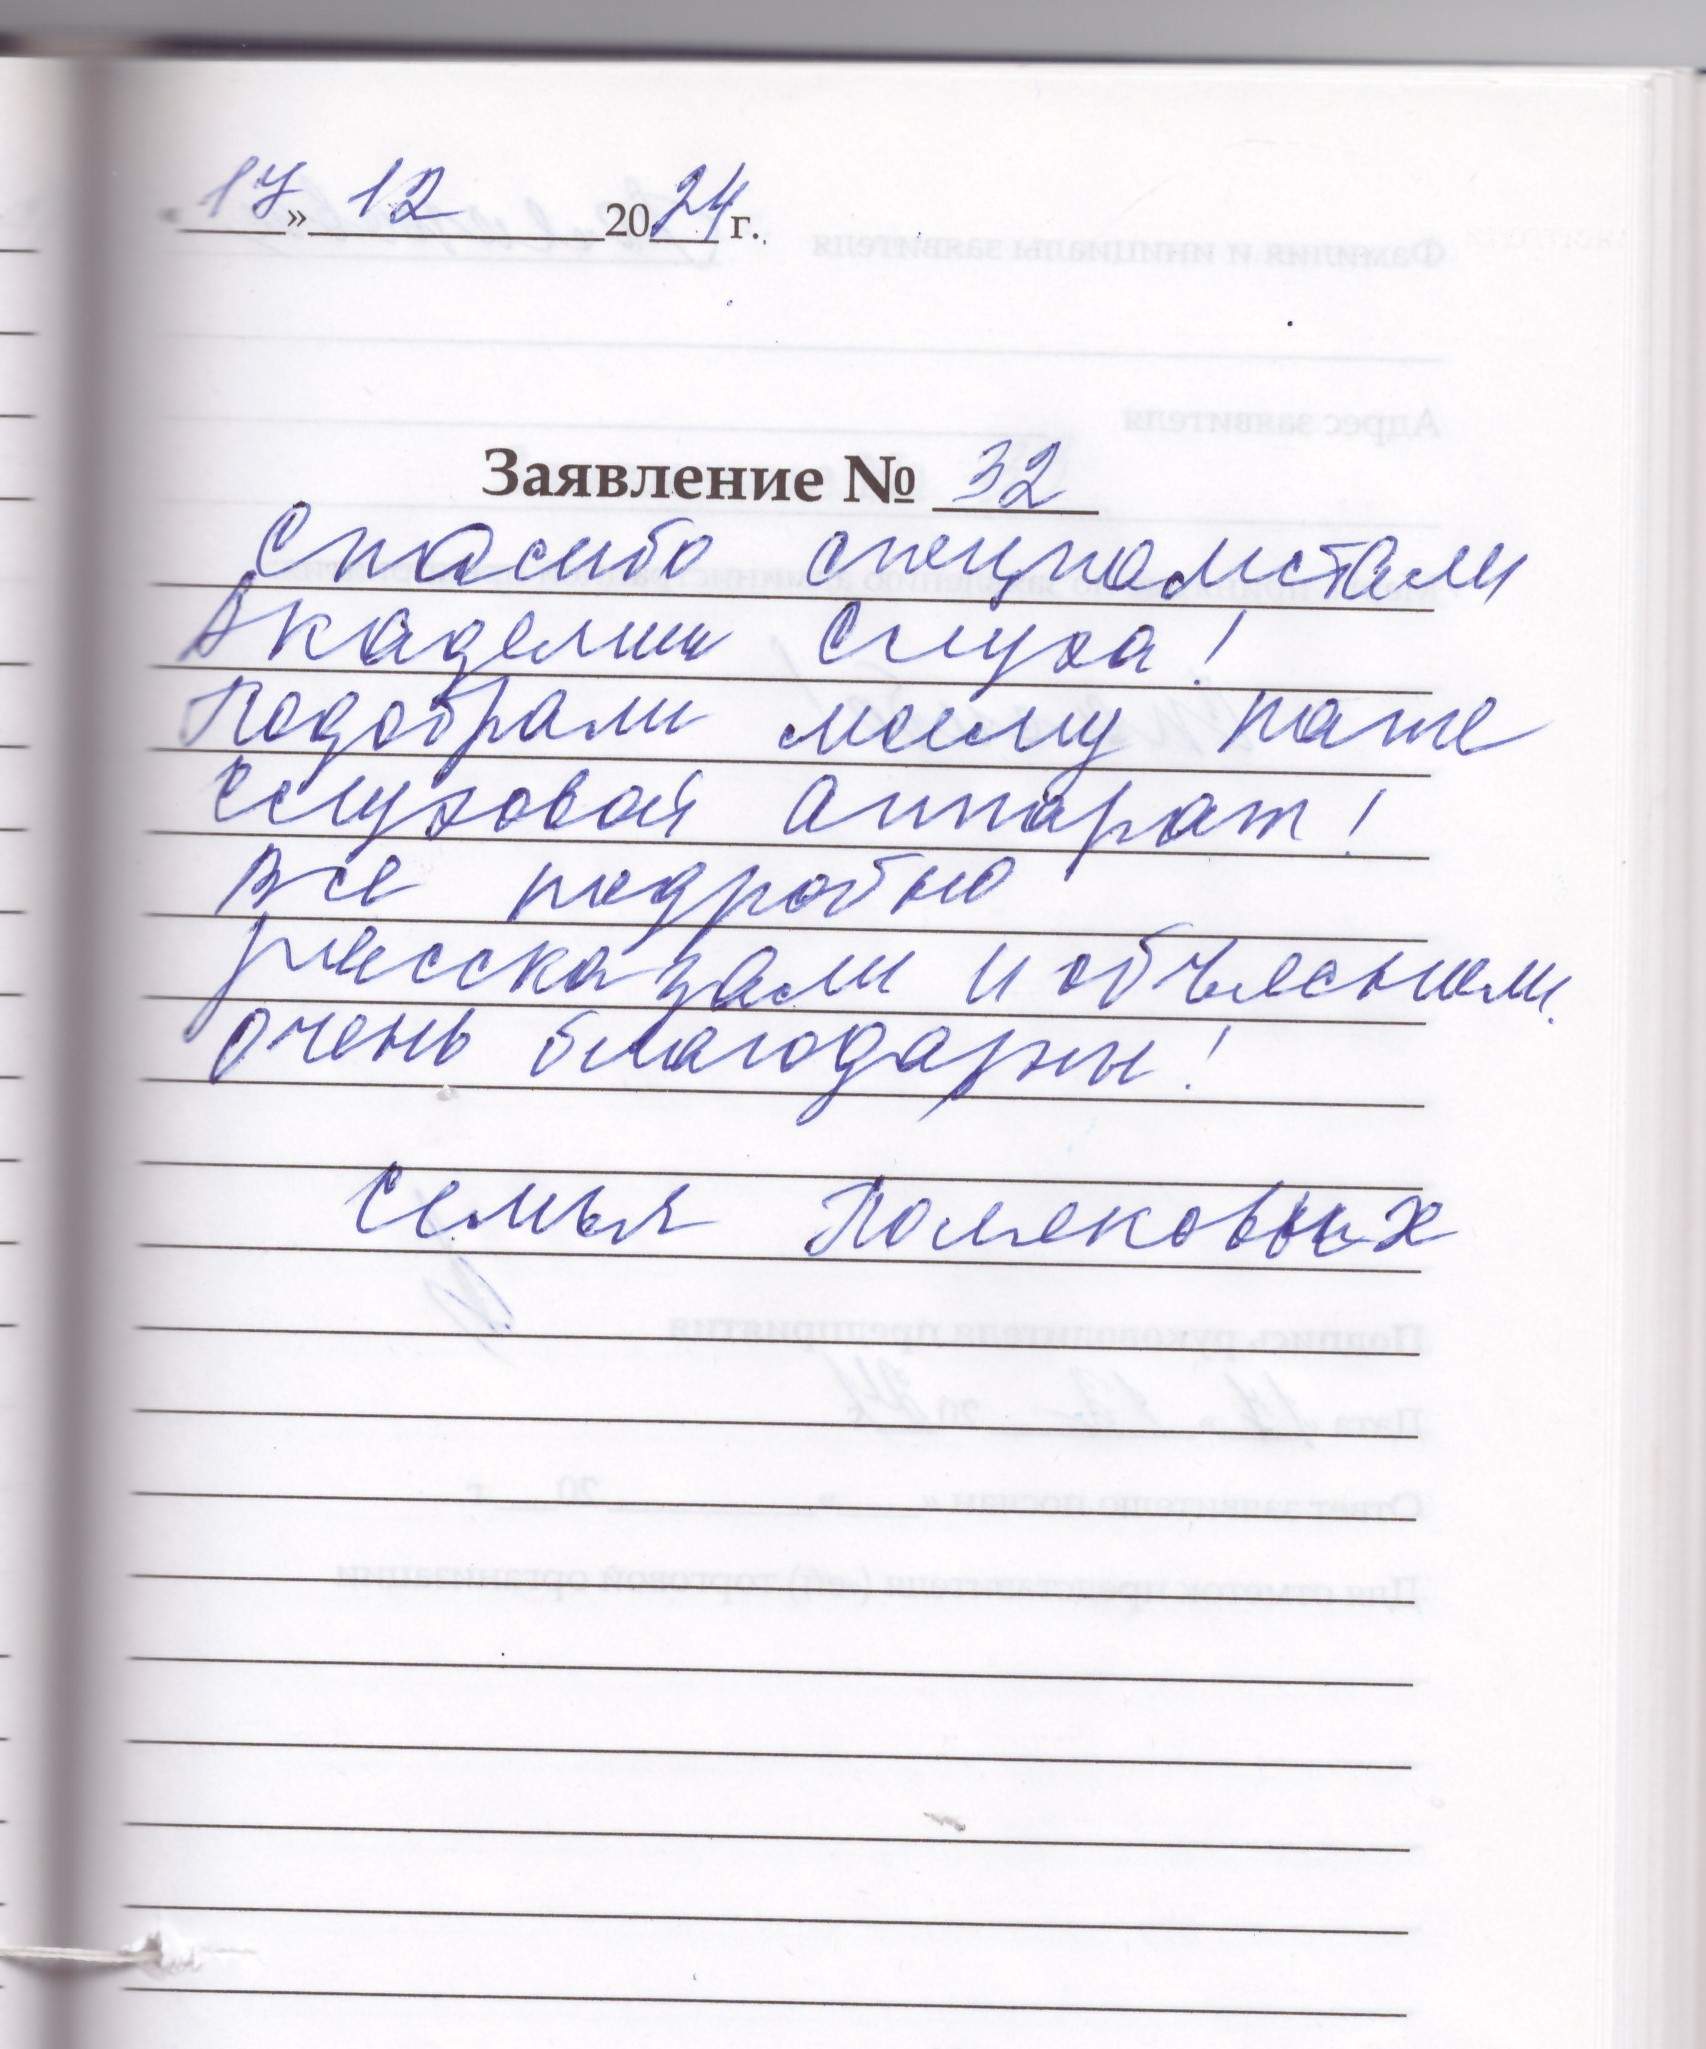 17» 12 2024 г.
Заявление № 32
Спасибо специалистам
Академии Слуха!
Подобрали моему папе
слуховой аппарат!
Все подробно
рассказали и объяснили.
Очень благодарны!
Семья Поляковых